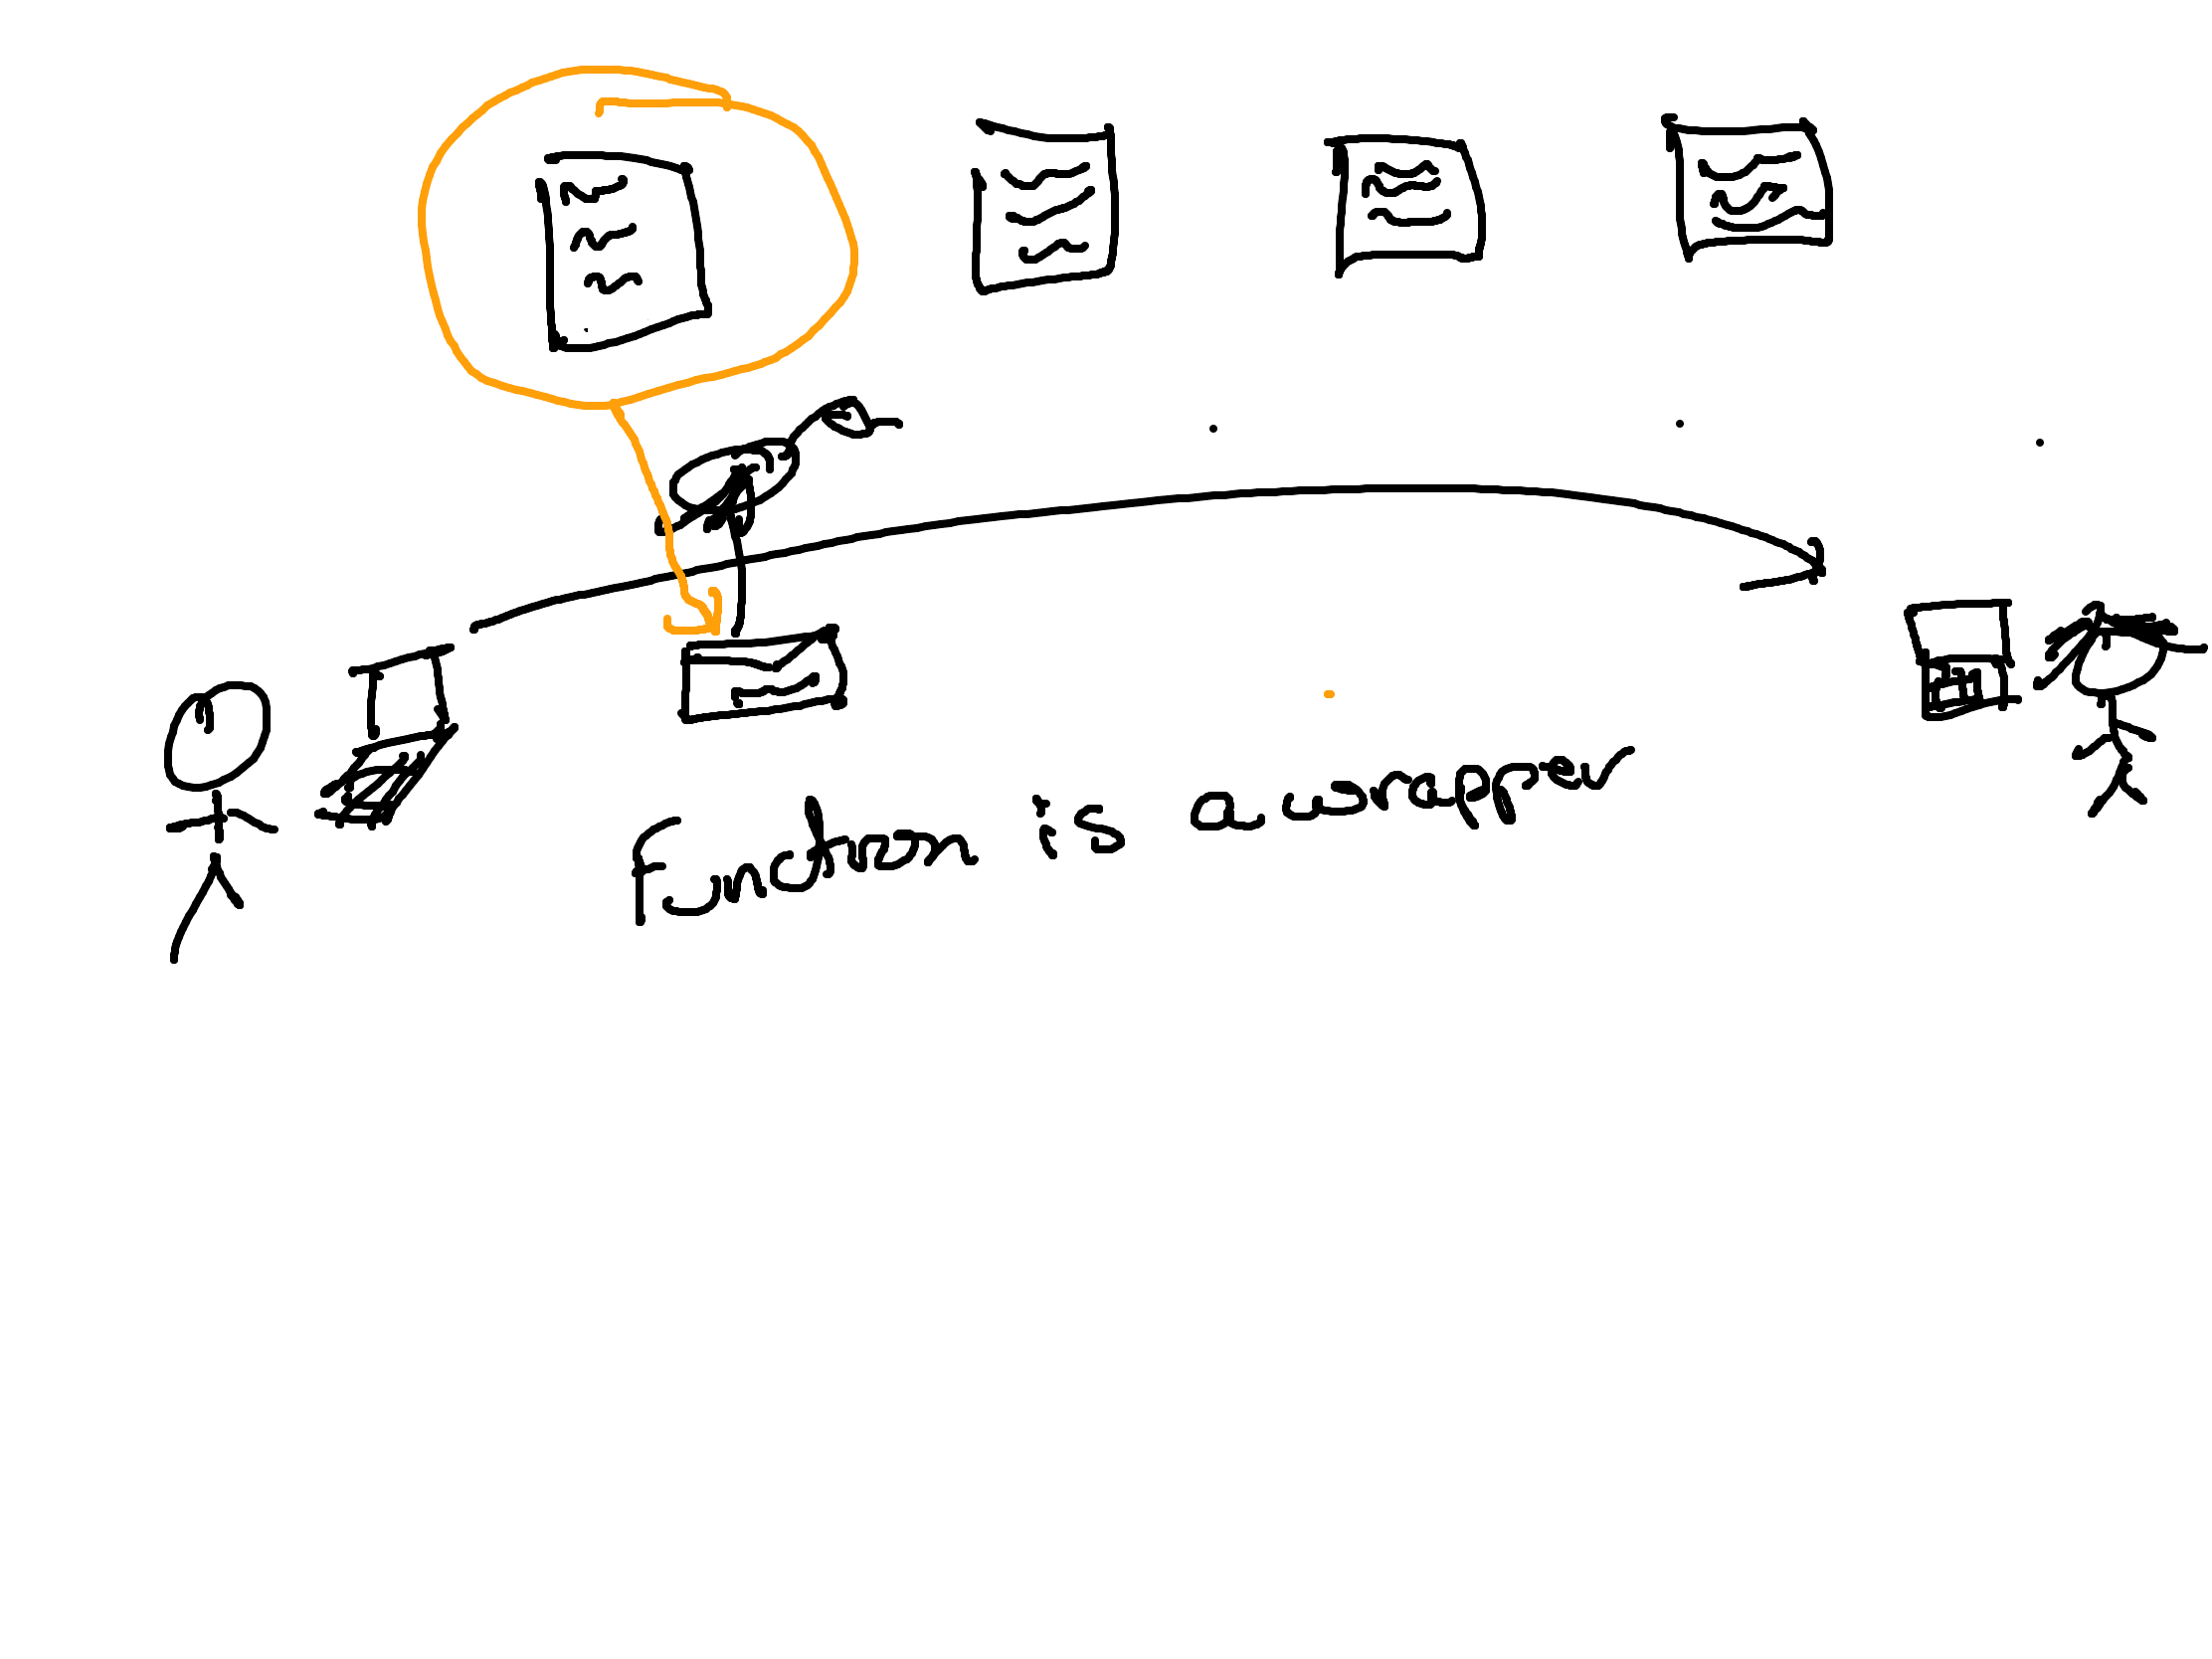 Function is a wrapper